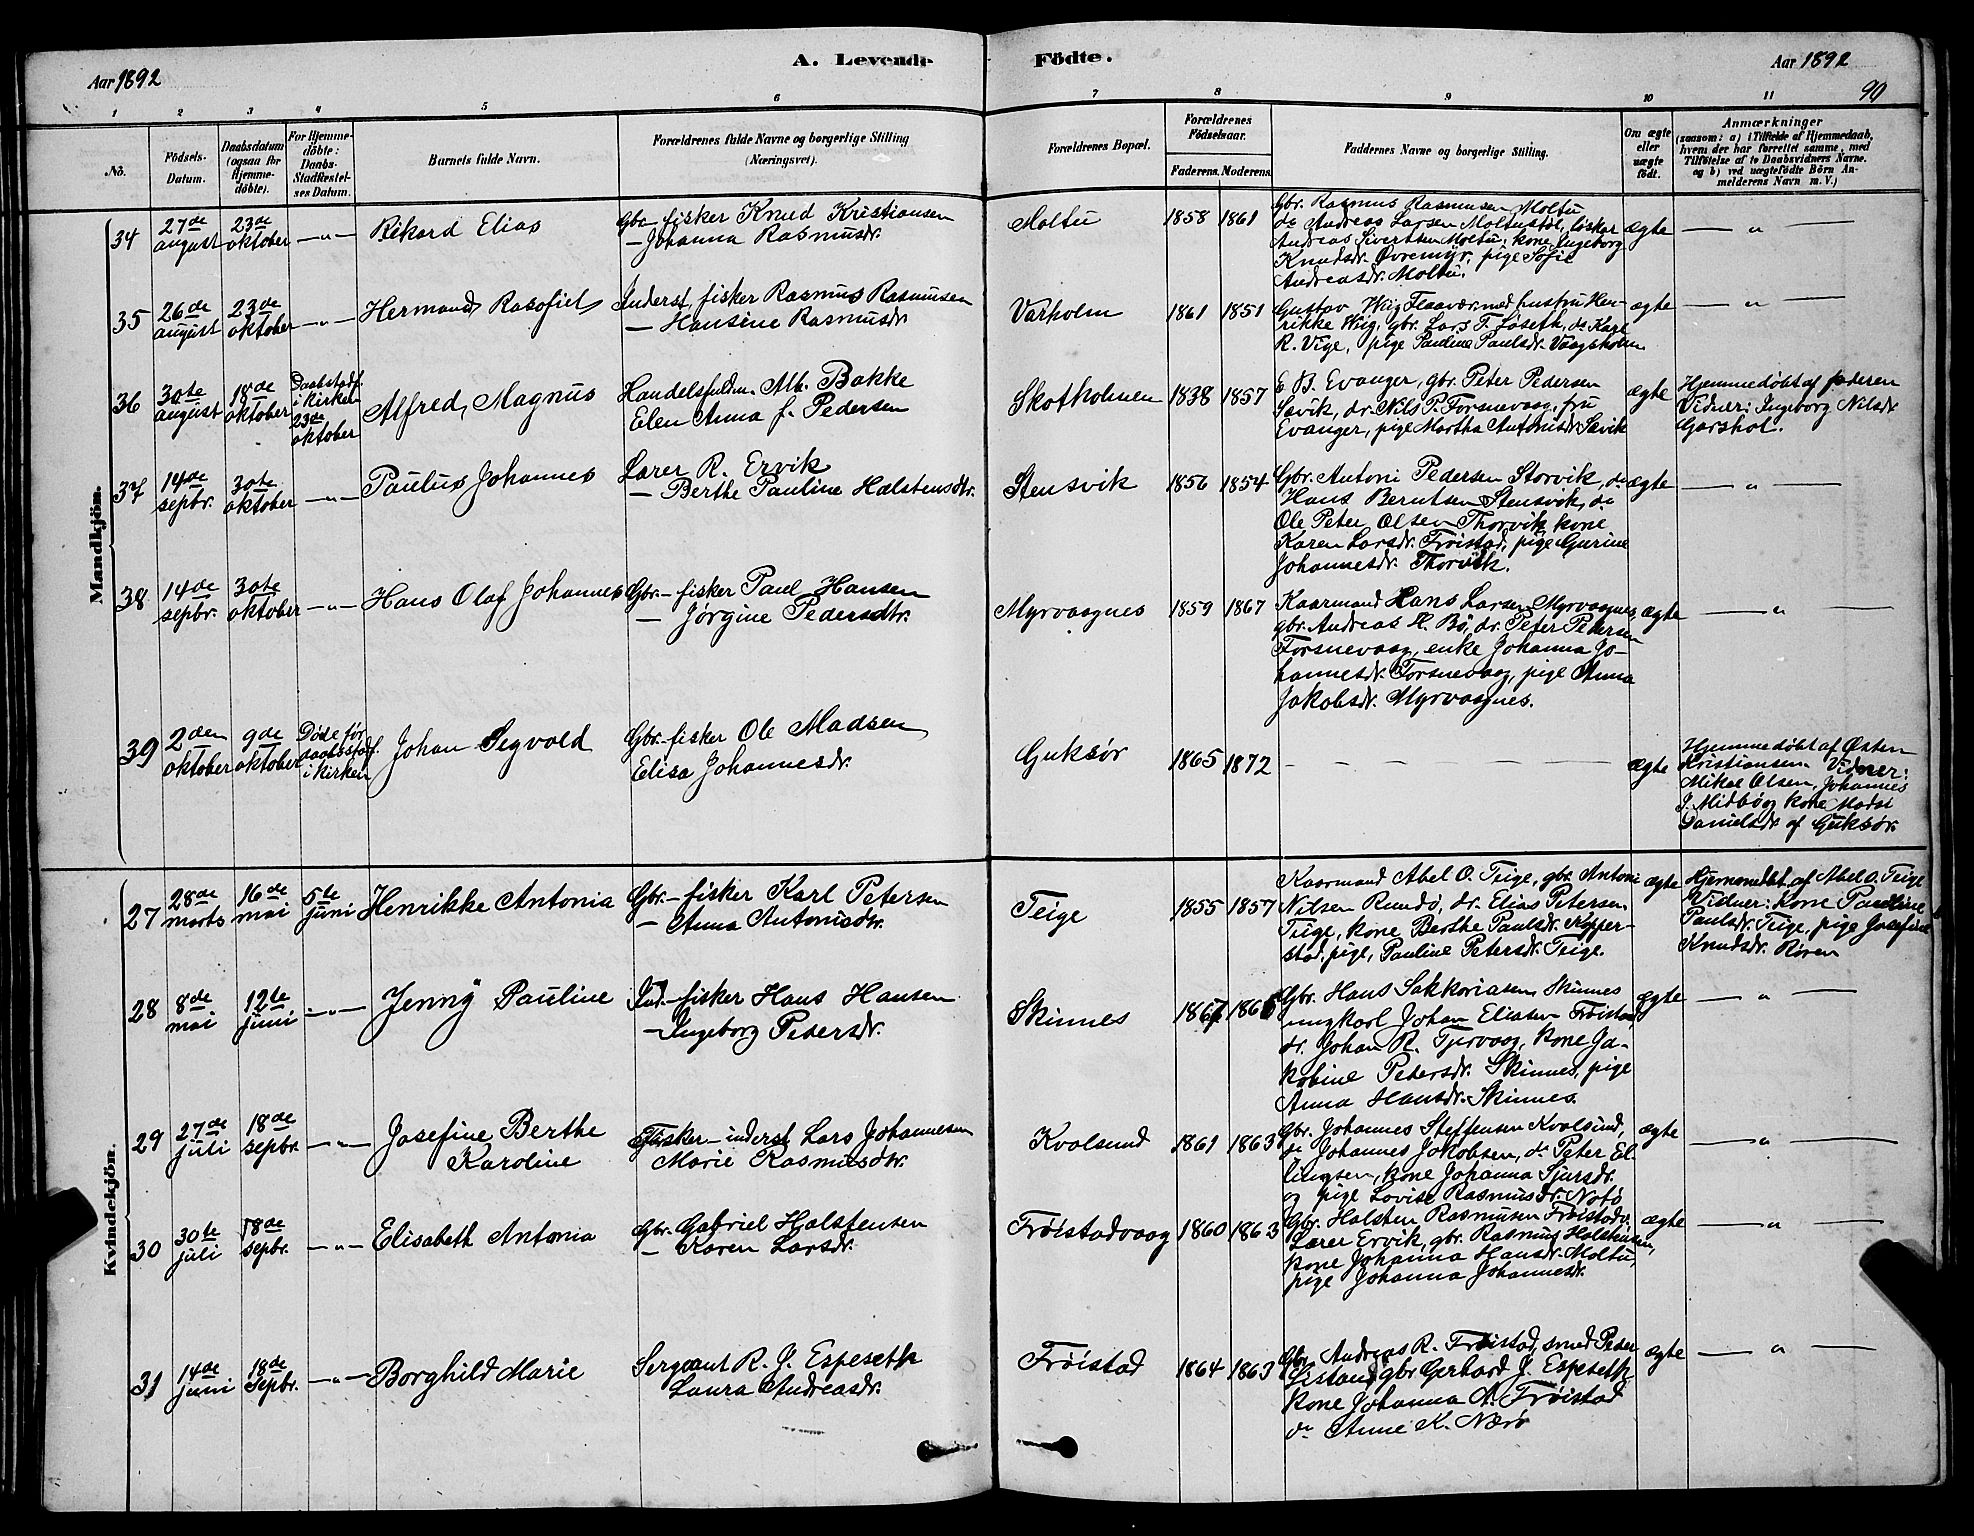 Aar 1892
A. Levende
Födte.
Aar 1892
90
1 2 3 4 5 6 7 8 9 10 11
No.
Födsels-
Datum.
Daabsdatum
(ogsaa for
Hjemme-
döbte).
For Hjemme-
döbte:
Daabs-
Stadfæstel-
ses Datum.
Barnets fulde Navn.
Forældrenes fulde Navne og borgerlige Stilling
(Næringsvei).
Forældrenes Bopæl.
Forældrenes
Födselsaar.
Faderens. Moderens.
Faddernes Navne og borgerlige Stilling.
Om ægte
eller
uægte
födt.
Anmærkninger
(saasom: a) i Tilfælde af Hjemmedaab,
hvem der har forrettet samme, med
Tilföielse af to Daabsvidners Navne.
og b) ved uægtefödte Börn An-
melderens Navn m. V.)
Mandkjön.
34
27de
august
23de
oktober
— " —
Rikard Elias
Gbr – fisker Knud Kristiansen
— Johanna Rasmusdr.
Moltu
1858
1861
Gbr. Rasmus Rasmusen Moltu
do Andreas Larsen Moltustøl, fisker
Andreas Sivertsen Moltu, kone Ingeborg
Knudsdr. Øvremyr, pige Sofie
Andreasdr. Moltu.
ægte
— " —
35
26de
august
23de
oktober
— " —
Hermand Rasofiel
Inderst, fisker Rasmus Rasmusen
— Hansine Rasmusdr.
Varholm
1861
1851
Gustav Wiig Flaavær med hustru Hen-
rikke Wiig, gbr. Lars T. Løseth, do Kage
R. Vige, pige Pauline Paulsdr. Vaagsholm
ægte
— " —
36
30te
august
18de
oktober
Daabstadf.
i kirken
23de
oktober
Alfred, Magnus
Handelsfuldm. Alb. Bakke
Elen Anna f. Pedersen
Skotholmen
1838
1857
E. B. Evanger, gbr. Peter Pedersen
Sævik, do Nils P. Forsnevaag, fru
Evanger, pige Martha Antonisdr. Sævik
ægte
Hjemmedøbt af faderen
Vidner: Ingeborg Nilsdr.
Garshol.
37
14de
sepbr.
30te
oktober
— " —
Paulus Johannes
Lærer R. Ervik
— Berthe Pauline Halstensdtr.
Stensvik
1856
1854
Gbr. Antoni Pedersen Storvik, do
Hans Berntsen Stensvik, do
Ole Peter Olsen Thorvik, kone
Karen Larsdr. Frøistad, pige Gurine
Johannesdr. Thorvik.
ægte
— " —
38
14de
sepbr.
30te
oktober
— " —
Hans Olaf Johannes
Gbr – fisker Paul Hansen
— Jørgine Pedersdtr.
Myrvaagnes
1859
1867
Kaarmand Hans Larsen Myrvaagnes,
gbr. Andreas H. Bø, dr. Peter Petersen
Forsnevaag, enke Johanna Jo-
hannesdr. Forsnevaag, pige Anna
Jakobsdr. Myrvaagnes.
ægte
— " —
39
2den
oktober
9de
oktober
Døde før
daabsstadf.
i kirken
Johan Segvald
Gbr – fisker Ole Madsen
Elisa Johannesdr.
Gurksør
1865
1872
— — — — —
ægte
Hjemmedøbt af Østen
Kristiansen Vidner:
Mikal Olsen, Johannes
J. Midbø og kone Madsi
Danielsdr. af Gurksør.
Kvindekjön.
27
28de
marts
16de
mai
5te
juni
Henrikke Antonia
Gbr – fisker Karl Petersen
— Anna Antonisdtr.
Teige
1855
1857
Kaarmand Abel O. Teige, gbr. Antoni
Nilsen Rundø, dr. Elias Petersen
Teige, kone Berthe Paulsdr. Kopper-
stad, pige, Pauline Petersdr. Teige.
ægte
Hjemmedbt. af Abel O. Teige
Vidner: Kone Pauline
Paulsdr. Teige, pige Josefine
Knudsdr. Røren
28
8de
mai
12te
juni
— " —
Jenny Pauline
Ind. – fisker Hans Hansen
— Ingeborg Pedersdr.
Skinnes
Gbr. Hans Sakkariasen Skinnes
ungkarl Johan Eliasen Frøistad,
dr. Johan R. Tjervaag, kone Ja-
kobine Petersdr. Skinnes, pige
Anna Hansdr. Skinnes
ægte
— " —
29
27de
juli
18de
sepbr.
— " —
Josefine Berthe
Karoline
Fisker – inderst Lars Johannesen
Marie Rasmusdtr.
Kvalsund
1861
1863
Gbr. Johannes Steffensen Kvalsund,
do Johannes Jakobsen, do Peter El-
lingsen, kone Johanna Sjursdr.
og pige Lovise Rasmusdr. Notø
ægte
— " —
30
30te
juli
18de
sepbr.
— " —
Elisabeth Antonia
Gbr. Gabriel Halstensen
— Karen Larsdr.
Frøistadvaag
1860
1863
Gbr. Halsten Rasmusen Frøistadv.
Lærer Ervik, gbr. Rasmus Halstensen,
kone Johanna Hansdr. Moltu,
pige Johanna Johannesdr.
ægte
— " —
31
14de
juni
18de
sepbr.
— " —
Borghild Marie
Sergeant R. J. Espeseth
Laura Andreasdr.
Frøistad
1864
1863
Gbr. Andreas R. Frøistad, smed Peter
gbr Gerhard J. Espeseth
kone Johanna A. Frøistad
do Anne K. Nærø
ægte
— " —